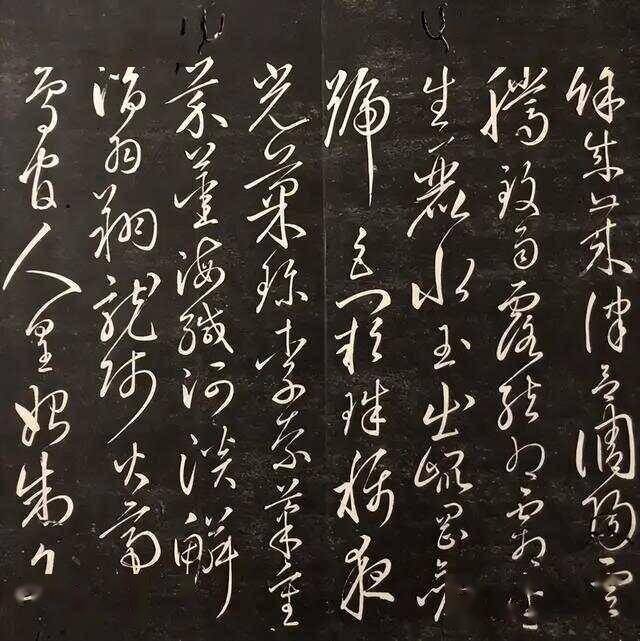 餘成歲律呂調陽雲
騰致雨露結為霜金
生麗水玉出崑岡劍
號巨闕珠稱夜
光菓珍李柰菜重
芥薑海鹹河淡鱗
潛羽翔龍師火帝
鳥官人皇始制文